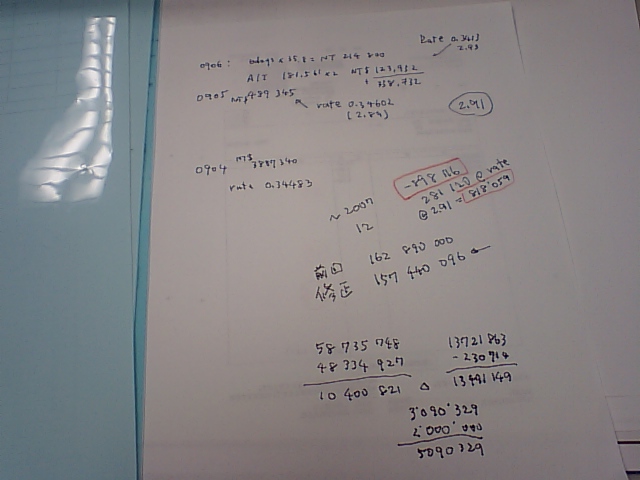 Rate 0.3413
2.93
0906: 6days x 35.8 = NT 214 800
A/T 181,561 x 2 NT$ 123,932
+ 338,732
0905 NT$ 489 345 rate 0.34602
(2.89)
2.91
0904 NT$ 3887340
rate 0.34483
-898 116
281 120 @ rate
@ 2.91 = 818 059
~2007
12
前回 162 890 000
修正 157 440 096
58 735 748
48 334 927
10 400 821 △
13721 863
- 230 714
13491 149
3'090'329
2'000'000
5090329